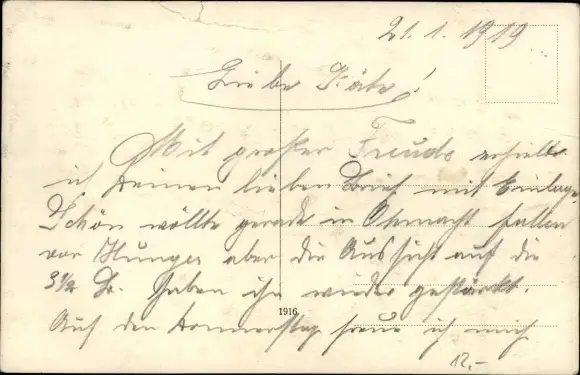 21.1.1919
Liebe Käte!
Mit großer Freude erhielt
ich Deinen lieben Brief mit Einlage.
Schön wollte gerade in Ohnmacht fallen
vor Hunger aber die Aussicht auf die
3½ haben ihn wieder gestärkt.
1916
Auf den Donnerstag freue ich mich
12.-